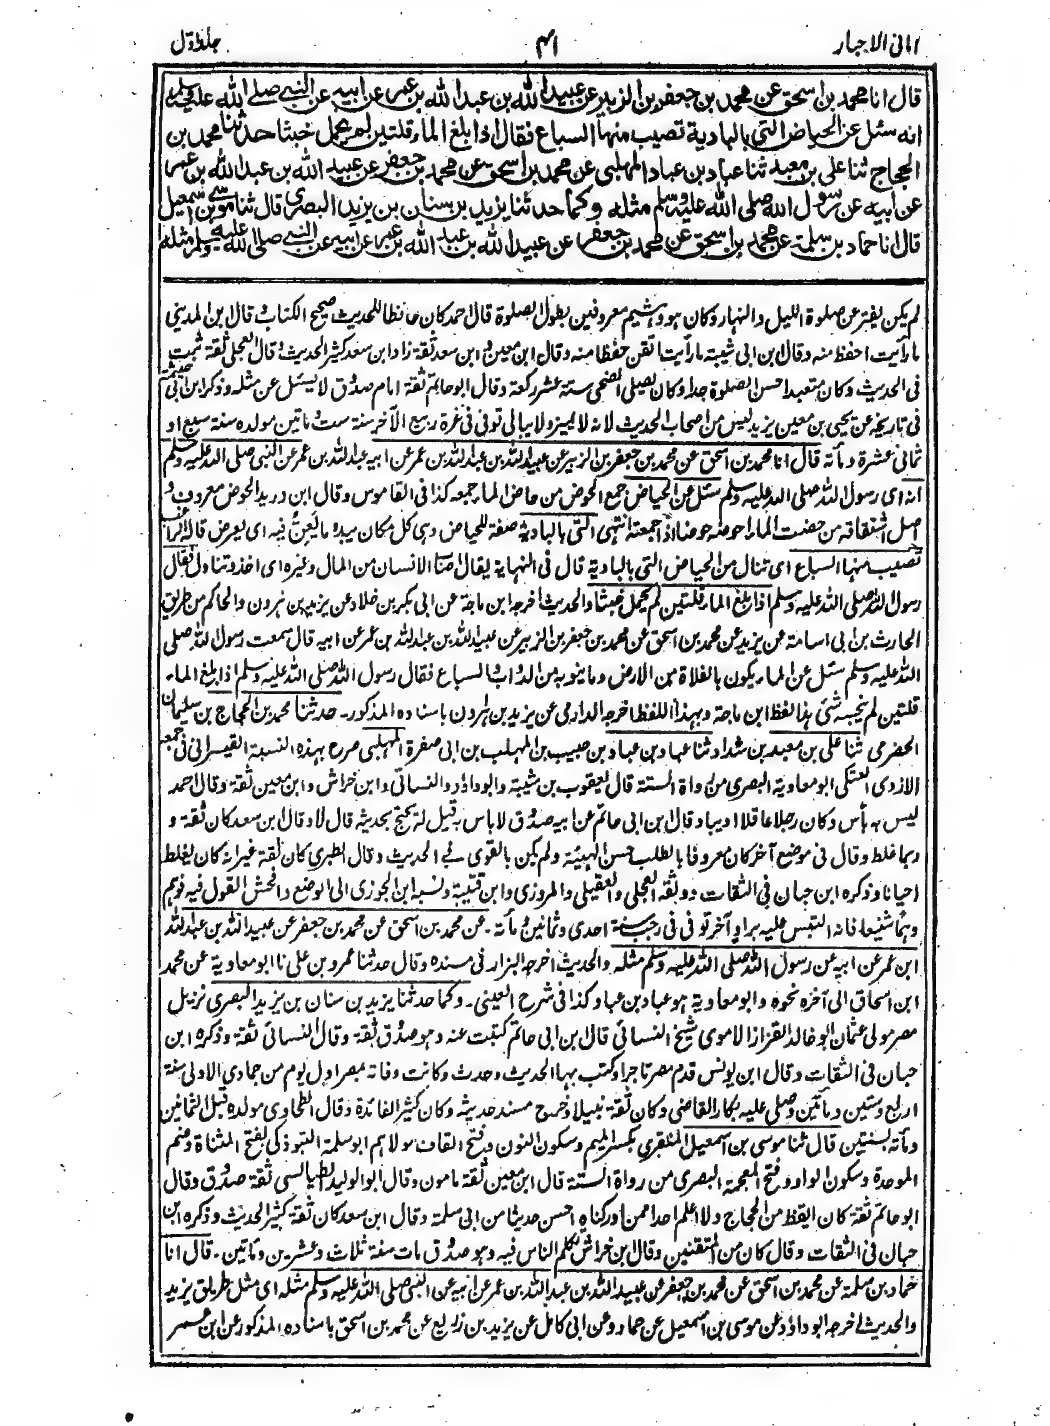 امانی الاحبار ۴۱ جلد اول
قال انا محمد بن اسحق عن محمد بن جعفر بن الزبير عن عبيد الله بن عبد الله بن عمر عن ابيه عن النبي صلى الله عليه وسلم
انه سئل عن الحياض التى بالبادية تصيب منها السباع فقال اذا بلغ الماء قلتين لم يحمل خبثا حدثنا محمد بن
الحجاج ثنا على بن معبد ثنا عباد بن عباد المهلبى عن محمد بن اسحق عن محمد بن جعفر عن عبيد الله بن عبد الله بن عمر
عن ابيه عن رسول الله صلى الله عليه وسلم مثله وكما حدثنا يزيد بن سنان بن يزيد البصرى قال ثنا موسى بن اسمعيل
قال انا حماد بن سلمة عن محمد بن اسحق عن محمد بن جعفر عن عبيد الله بن عبد الله بن عمر عن ابيه عن النبي صلى الله عليه وسلم مثله
لم يكن يفتر عن صلوة الليل والنهار وكان هو وهشيم معروفين بطول الصلوة قال احمد كان حافظا للحديث صحيح الكتاب وقال ابن المدينى
ما رأيت احفظ منه وقال ابن ابى شيبة ما رأيت اتقن حفظا منه وقال ابن معين وابن سعد ثقة زاد ابن سعد كثير الحديث وقال العجلى ثقة ثبت
فى الحديث وكان متعبدا حسن الصلوة جدا وكان يصلى الضحى ستة عشر ركعة وقال ابو حاتم ثقة امام صدوق لا يسئل عن مثله وذكر ابن ابى خيثمة
فى تاريخه عن يحيى بن معين يزيد ليس من اصحاب الحديث لانه لا يميز ولا يبالى توفى فى غرة ربيع الآخر سنة ست ومأتين مولده سنة سبع او
ثمانى عشرة ومأة قال انا محمد بن اسحق عن محمد بن جعفر بن الزبير عن عبيد الله بن عبد الله بن عمر عن ابيه عبد الله بن عمر عن النبى صلى الله عليه وسلم
انه اى رسول الله صلى الله عليه وسلم سئل عن الحياض جمع الحوض من حاض الماء جمعه كذا فى القاموس وقال ابن دريد الحوض معروف و
اصل اشتقاقه من حضت الماء احوضه حوضا اذا جمعته انتهى التى بالبادية صفة للحياض وهى كل مكان يبدو ما يعن فيه اى يعرض قاله الراغب
تصيب منها السباع اى تنال من الحياض التى بالبادية قال فى النهاية يقال اصاب الانسان من المال وغيره اى اخذ وتناول فقال
رسول الله صلى الله عليه وسلم اذا بلغ الماء قلتين لم يحمل خبثا والحديث اخرجه ابن ماجة عن ابى بكر بن خلاد عن يزيد بن هرون والحاكم من طريق
الحارث بن ابى اسامة عن يزيد عن محمد بن اسحق عن محمد بن جعفر بن الزبير عن عبيد الله بن عبد الله بن عمر عن ابيه قال سمعت رسول الله صلى
الله عليه وسلم سئل عن الماء يكون بالفلاة من الارض وما ينوبه من الدواب والسباع فقال رسول الله صلى الله عليه وسلم اذا بلغ الماء
قلتين لم ينجسه شئ هذا لفظ ابن ماجة وبهذا اللفظ اخرجه الدارمى عن يزيد بن هرون باسناده المذكور۔ حدثنا محمد بن الحجاج بن سليمان
الحضرمى ثنا على بن معبد بن شداد ثنا عباد بن عباد بن حبيب بن المهلب بن ابى صفرة المهلبى صرح بهذه النسبة القيسرانى فى جمعه
الازدى العتكى ابو معاوية البصرى من رواة الستة قال يعقوب بن شيبة وابو داؤد والنسائى وابن خراش وابن معين ثقة وقال احمد
ليس به بأس وكان رجلا عاقلا اديبا وقال ابن ابى حاتم عن ابيه صدوق لا بأس به قيل له يحتج بحديثه قال لا وقال ابن سعد كان ثقة و
ربما غلط وقال فى موضع آخر كان معروفا بالطلب حسن الهيئة ولم يكن بالقوى فى الحديث وقال الطبرى كان ثقة غير انه كان يغلط
احيانا وذكره ابن حبان فى الثقات ووثقه العجلى والعقيلى والمروزى وابن قتيبة ونسبه ابن الجوزى الى الوضع وافحش القول فيه فوهم
وهما شنيعا فانه التبس عليه براو آخر توفى فى رجب سنة احدى وثمانين ومأة۔ عن محمد بن اسحق عن محمد بن جعفر عن عبيد الله بن عبد الله
ابن عمر عن ابيه عن رسول الله صلى الله عليه وسلم مثله والحديث اخرجه البزار فى مسنده وقال حدثنا عمرو بن على نا ابو معاوية عن محمد
ابن اسحاق الى آخره نحوه وابو معاوية هو عباد بن عباد كذا فى شرح العينى۔ وكما حدثنا يزيد بن سنان بن يزيد البصرى نزيل
مصر مولى عثمان ابو خالد القزاز الاموى شيخ النسائى قال ابن ابى حاتم كتبت عنه وهو صدوق ثقة وقال النسائى ثقة وذكره ابن
حبان فى الثقات وقال ابن يونس قدم مصر تاجرا وكتب بها الحديث وحدث وكانت وفاته بمصر اول يوم من جمادى الاولى سنة
اربع وستين ومأتين وصلى عليه بكار القاضى وكان ثقة نبيلا وخرج مسند حديثه وكان كثير الفائدة وقال الطحاوى مولده قبل الثمانين
ومأة بسنتين قال ثنا موسى بن اسمعيل المنقرى بكسر الميم وسكون النون وفتح القاف مولاهم ابو سلمة التبوذكى بفتح المثناة وضم
الموحدة وسكون الواو وفتح المعجمة البصرى من رواة الستة قال ابن معين ثقة مامون وقال ابو الوليد الطيالسى ثقة صدوق وقال
ابو حاتم ثقة كان ايقظ من الحجاج ولا اعلم احدا ممن ادركناه احسن حديثا من ابى سلمة وقال ابن سعد كان ثقة كثير الحديث وذكره ابن
حبان فى الثقات وقال كان من المتقنين وقال ابن خراش تكلم الناس فيه وهو صدوق مات سنة ثلاث وعشرين ومأتين۔ قال انا
حماد بن سلمة عن محمد بن اسحق عن محمد بن جعفر عن عبيد الله بن عبد الله بن عمر عن ابيه عن النبى صلى الله عليه وسلم مثله اى مثل طريق يزيد
والحديث اخرجه ابو داؤد عن موسى بن اسمعيل عن حماد وعن ابى كامل عن يزيد بن زريع عن محمد بن اسحق باسناده المذكور عن ابن عمر